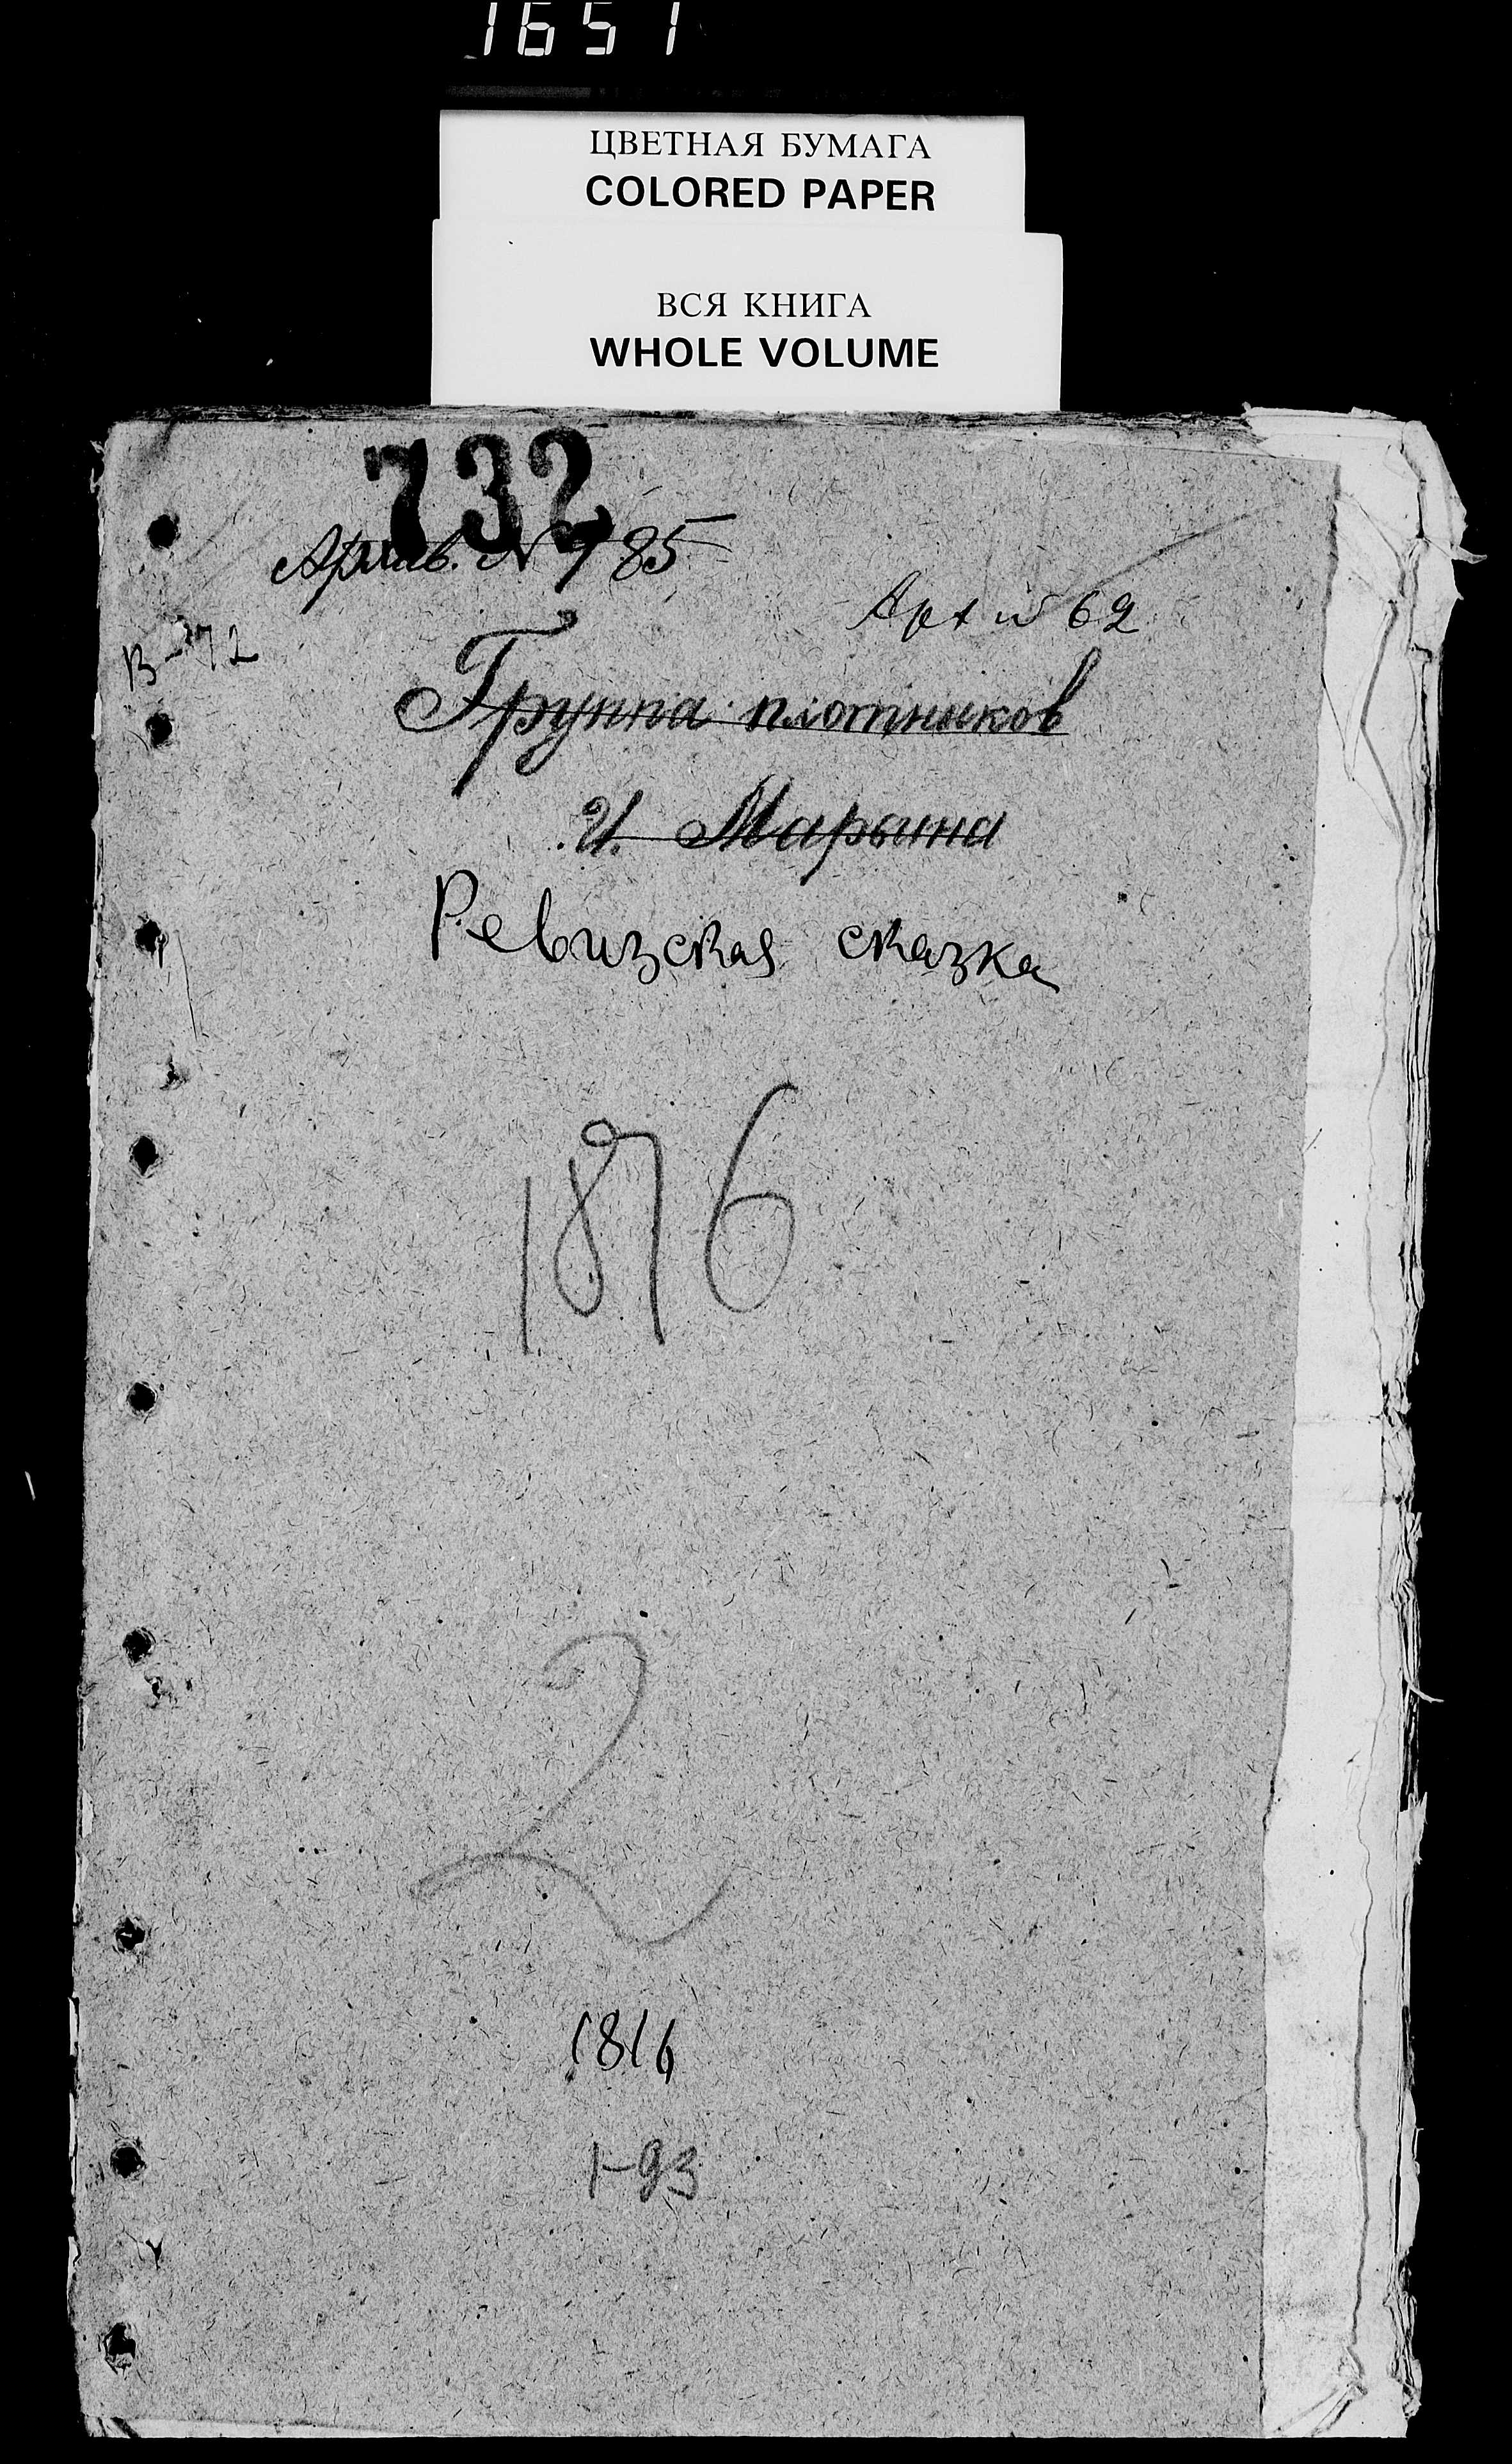 1651
ЦВЕТНАЯ БУМАГА
COLORED PAPER
ВСЯ КНИГА
WHOLE VOLUME
732
Архив. № 785
Арх № 62
В-72
Группа плотников
И. Марьина
Ревизская сказка
1816
2
1816
1-93